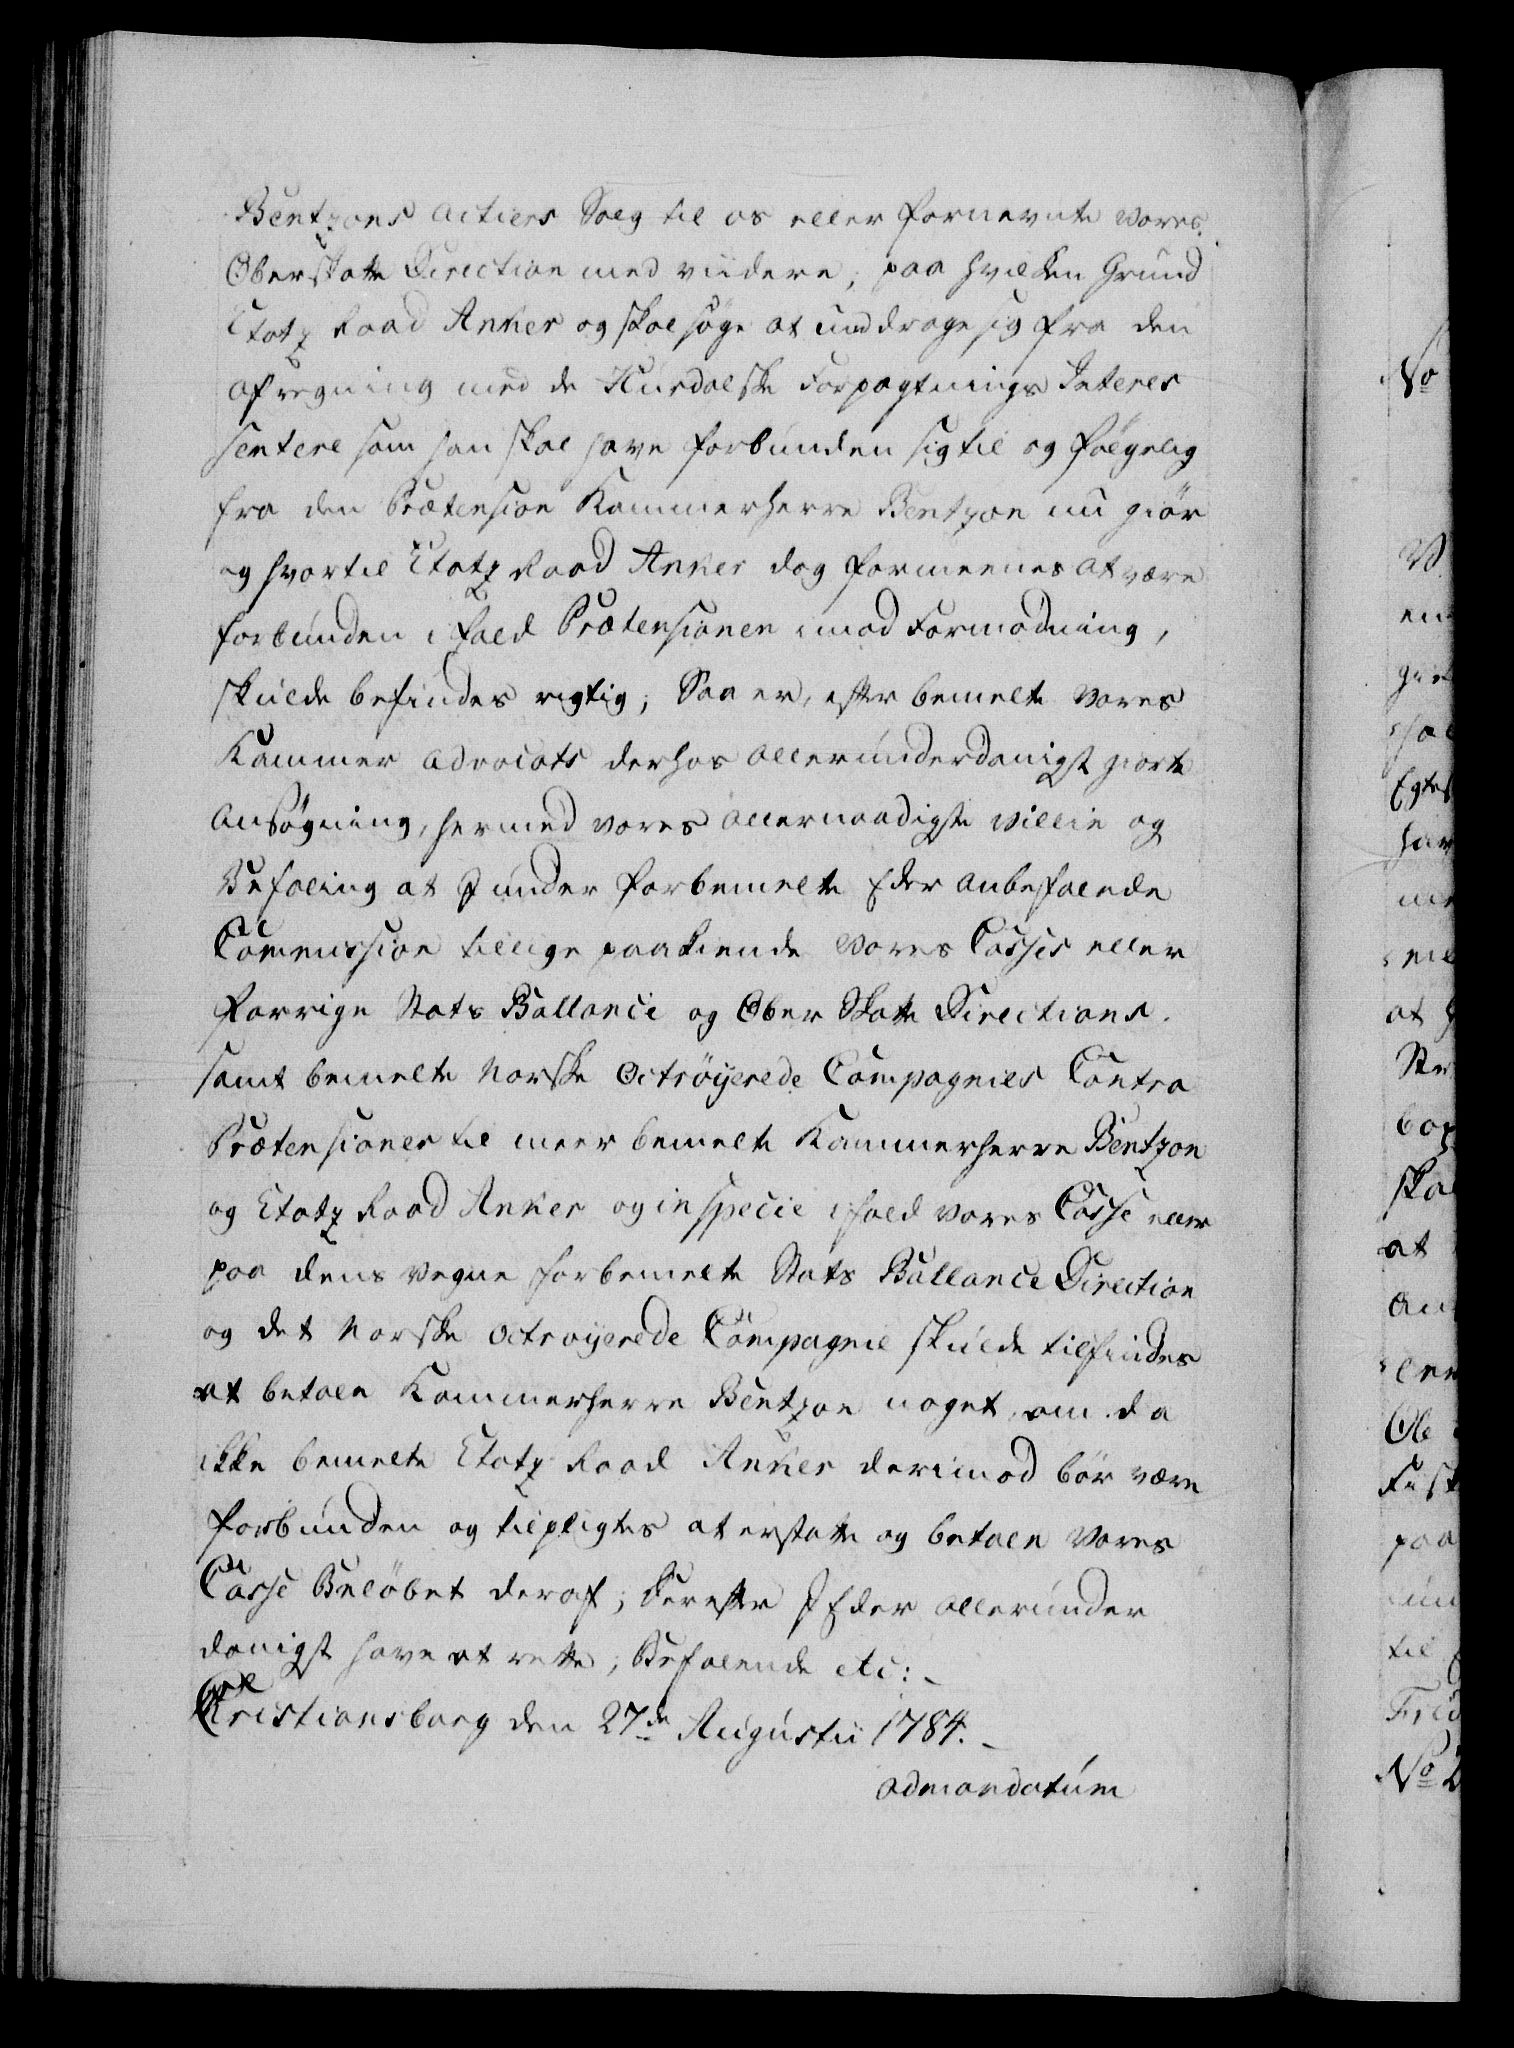 Bentzons Actiers Salg til os eller fornevnte vores
Oberskatte Direction med viidere, paa hvilken Grund
Etatz Raad Anker og skal søge at unddrage sig fra den
afregning med de Hurdalske Forpagtnings Interes
sentere som han skal have forbunden sig til og følgelig
fra den Prætension Kammerherre Bentzon nu giør
og hvortil Etatz Raad Anker dog formeenes at være
forbunden ifald Prætensionen imod Formodning,
skulde befindes rigtig; Saa er, efter bemelte vores
Kammer Advocats derhos allerunderdanigst giorte
Ansøgning, hermed vores allernaadigste Villie og
Befaling at I under forbemelte Eder anbefalede
Commission tillige paakiende vores Casses eller
forrige Stats Ballance og Ober Skatte Directions.
samt bemelte Norske Octrøyerede Compagnies Contra
Prætensioner til meer bemelte Kammerherre Bentzon
og Etatz Raad Anker og in specie ifald vores Casse eller
paa dens vegne forbemelte Stats Ballance Direction
og det Norske octroyerede Compagnie skulde tilfindes
at betale Kammerherre Bentzon noget, om da
ikke bemelte Etatz Raad Anker derimod bør være
forbunden og tilpligtes at erstatte og betale vores
Casse Beløbet deraf; Derefter I Eder allerunder
danigst have at rette; Befalende etc:-
Christiansborg den 27de Augustii 1784.-
admandatum
No
V
en
gie
Egtes
har
me
at
bog
skal
at
Ole
paa
til
No 2